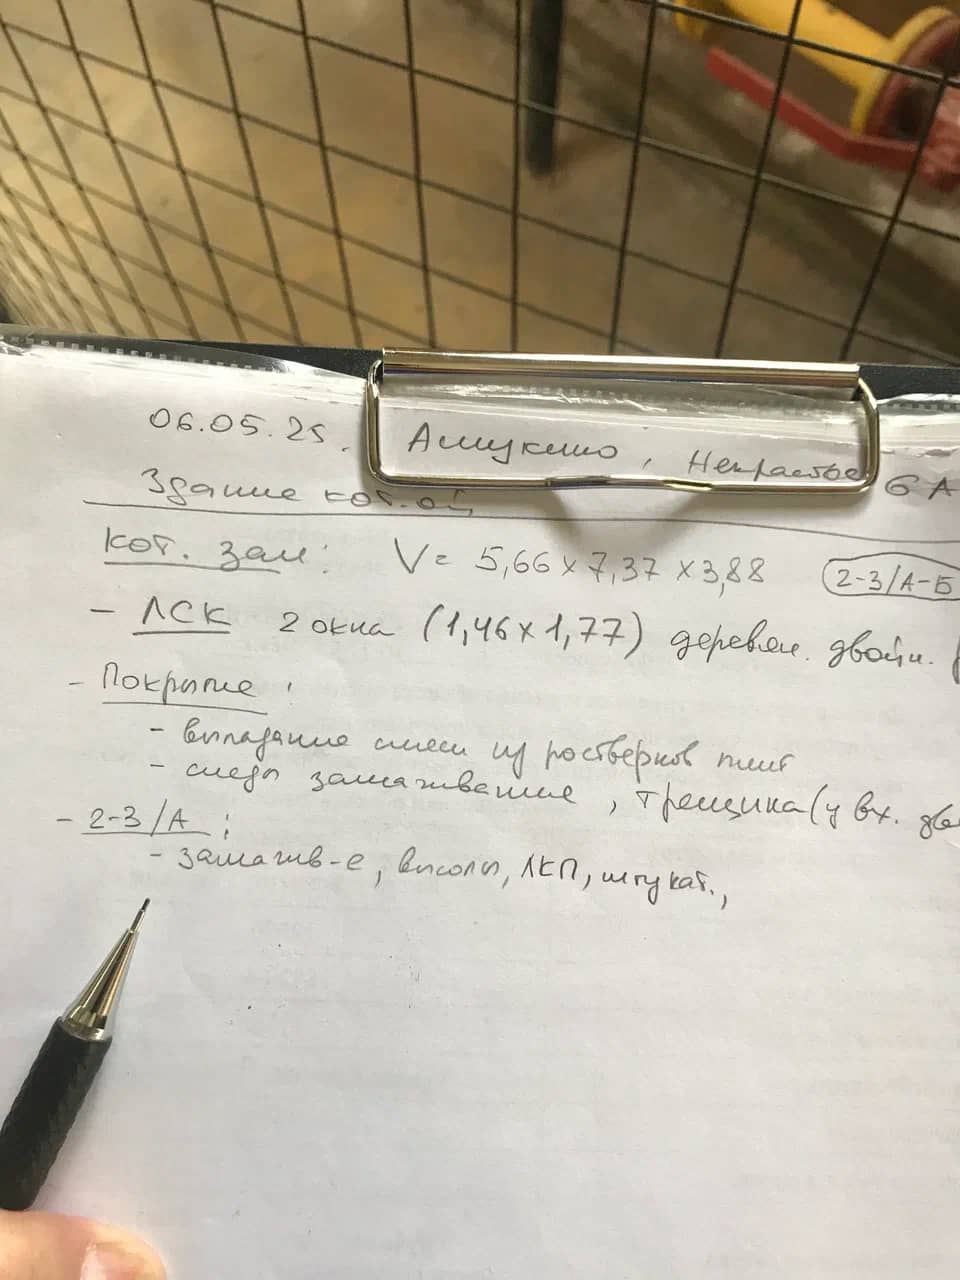 06.05.25. Ашукино, Некрасова 6А
Здание кот.ой
кот. зал: V= 5,66 x 7,37 x 3,88 2-3/А-Б
- ЛСК 2 окна (1,46 x 1,77) деревян. двойн.
- Покрытие:
- выпадание смеси из ростверков плит
- следы замачивание, трещина (у вх. две
- 2-3/А:
- замачив-е, высолы, ЛКП, штукат.,